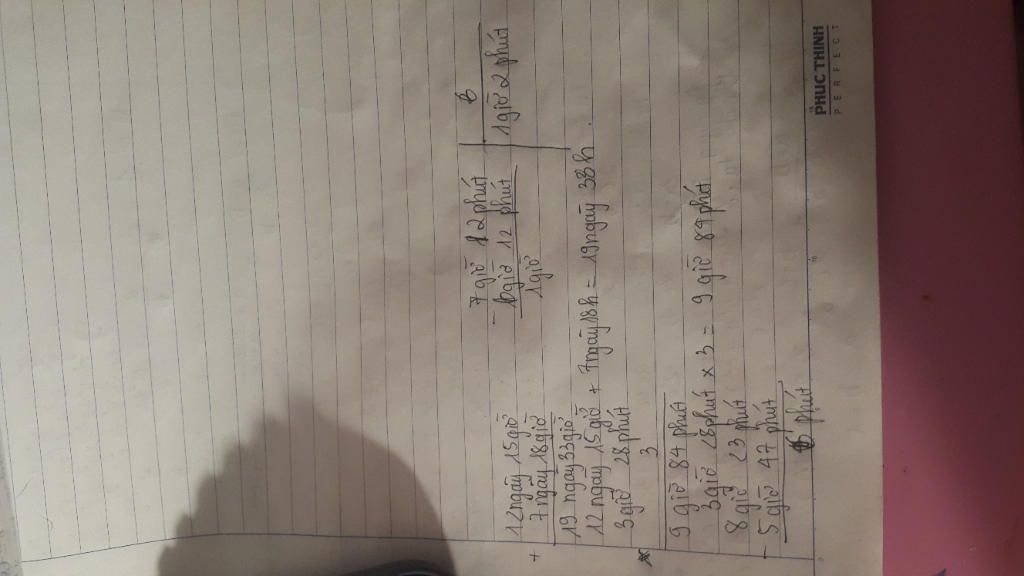 12 ngày 15 giờ
+
7 ngày 18 giờ
19 ngày 33 giờ
12 ngày 15 giờ + 7 ngày 18h = 19 ngày 33h.
3 giờ 28 phút
×
3
9 giờ 84 phút
3 giờ 28 phút × 3 = 9 giờ 84 phút
8 giờ 23 phút
-
5 giờ 47 phút
phút
7 giờ 12 phút
-
6 giờ 12 phút
1 giờ
6
1 giờ 2 phút
PHUC THINH
PERFECT